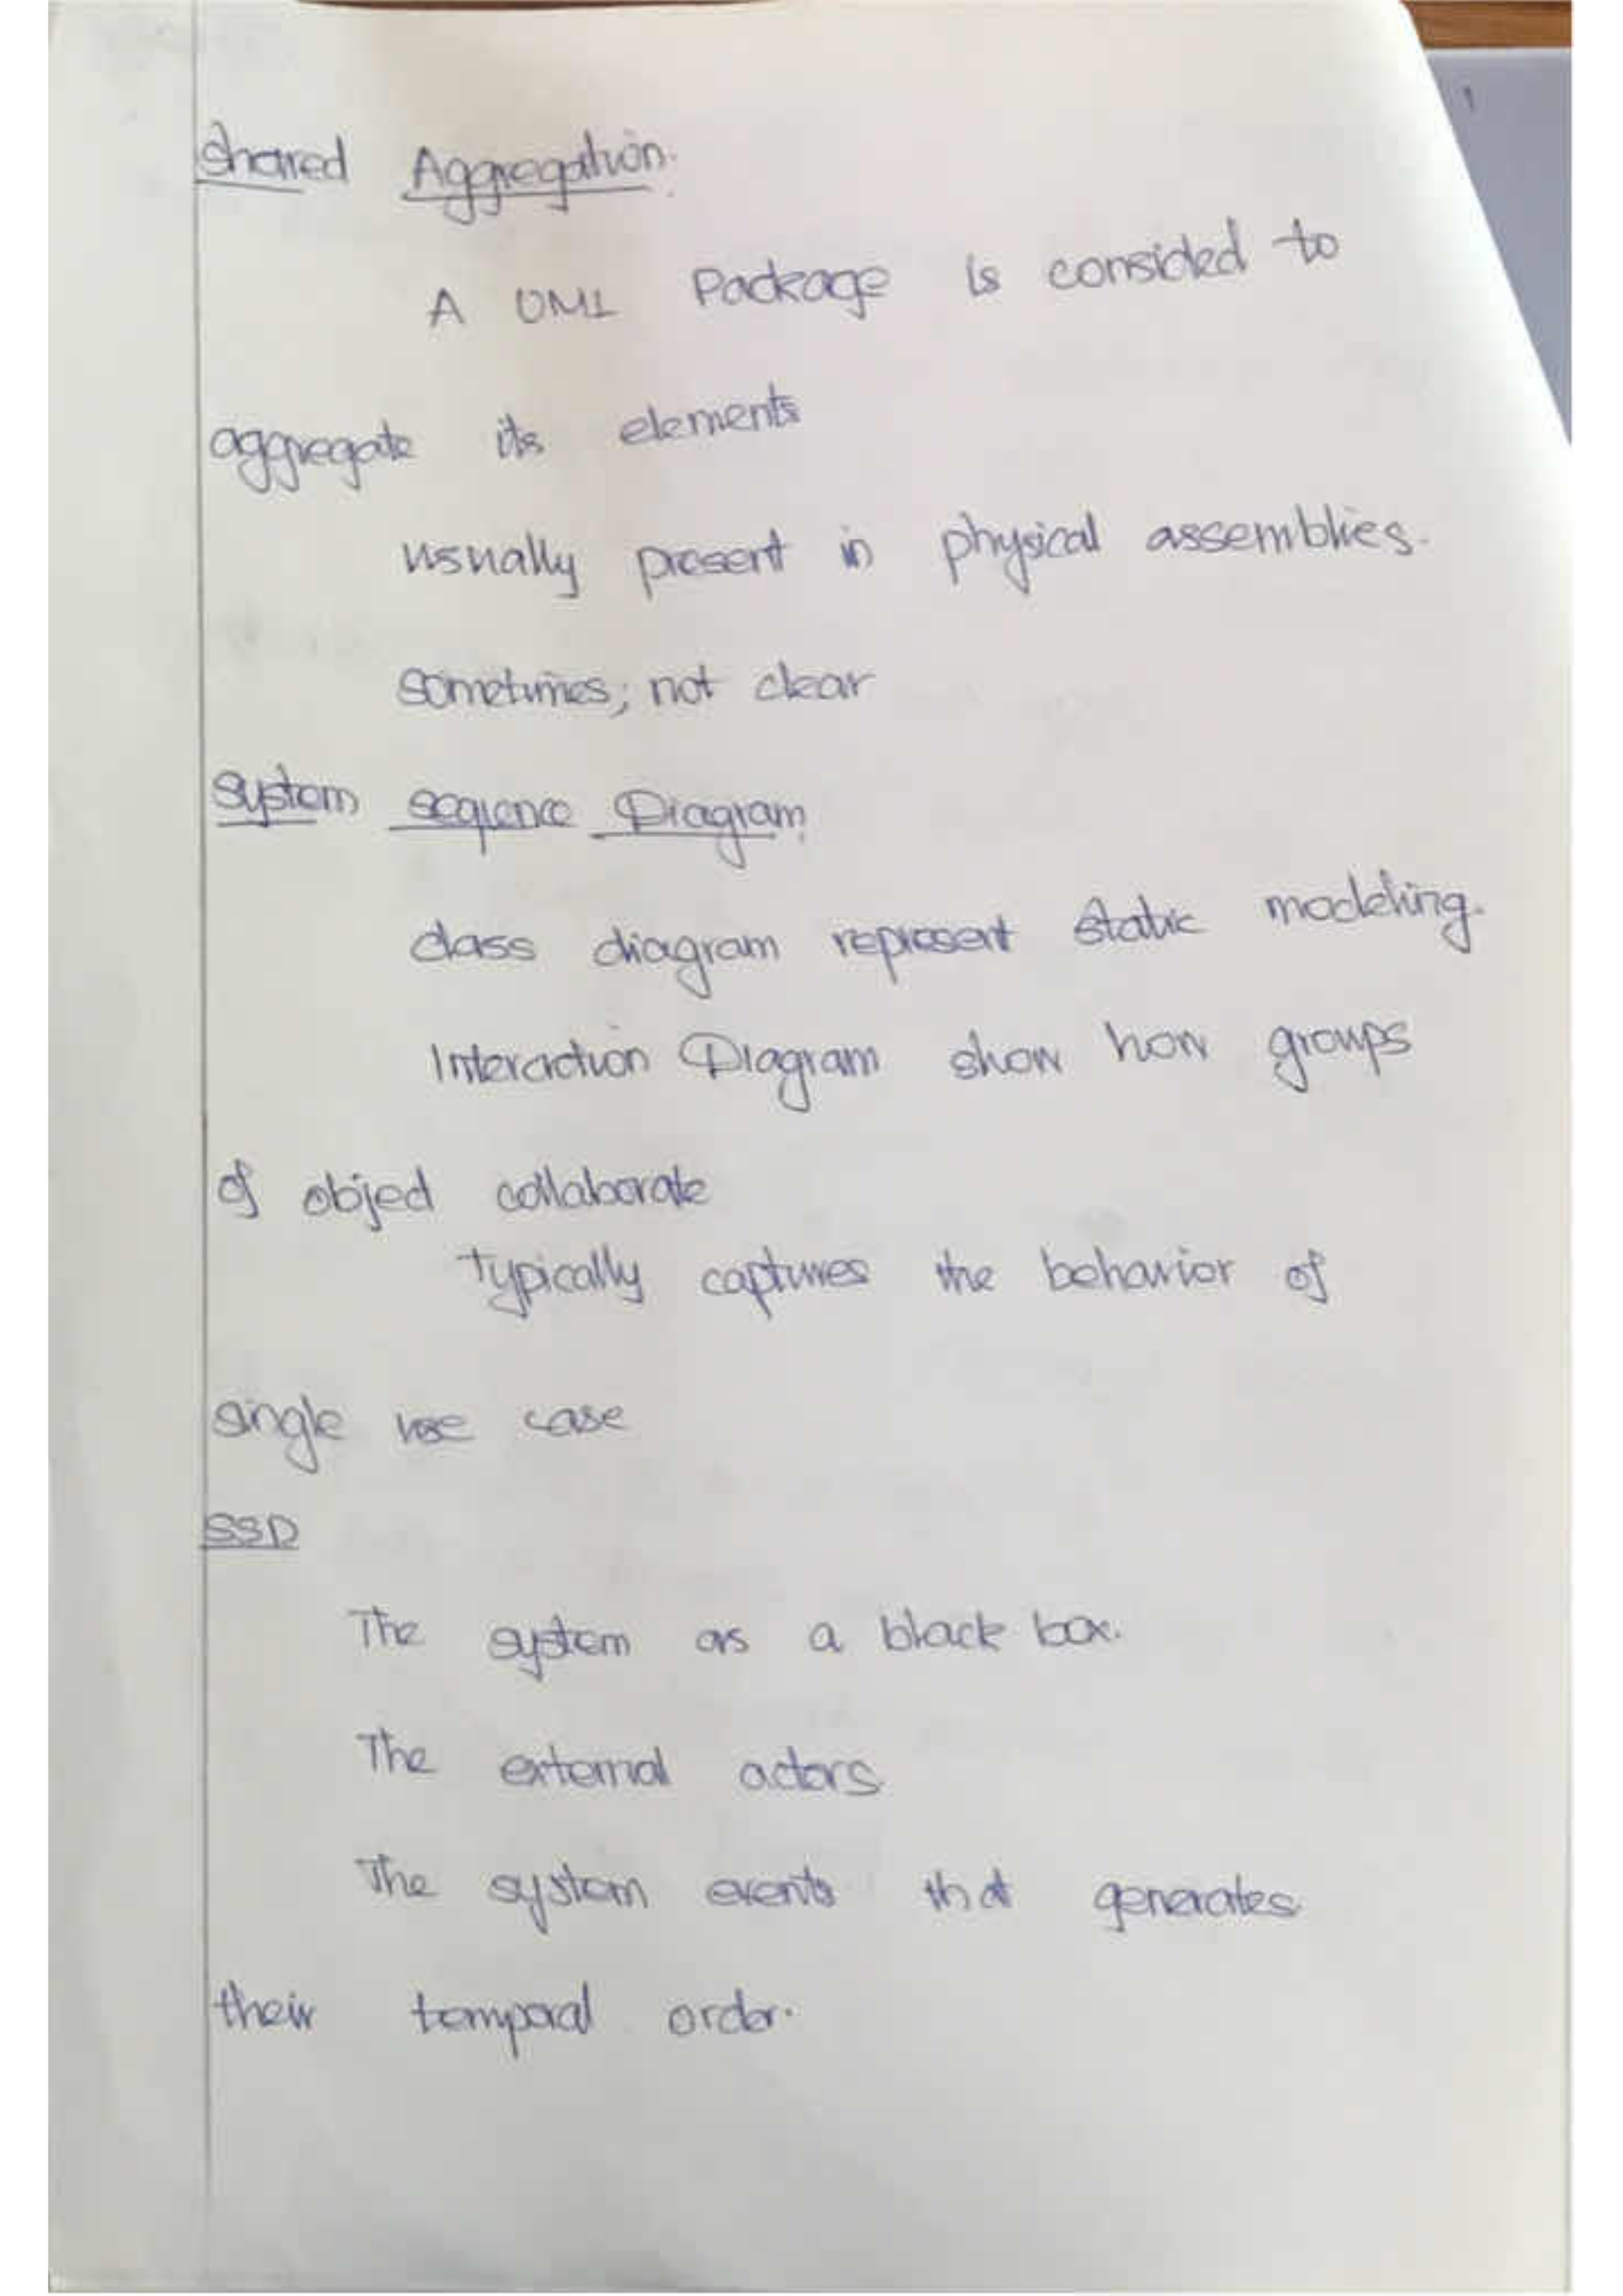 Shared Aggregation.
A UML Package is consided to
aggregate its elements
usually present in physical assemblies.
sometimes; not clear
System seqience Diagram
class diagram represent static modeling.
Interaction Diagram show how groups
of object collaborate
Typically captures the behavior of
single use case
SSD
The system as a black box.
The external actors.
The system events that generates
their temporal order.